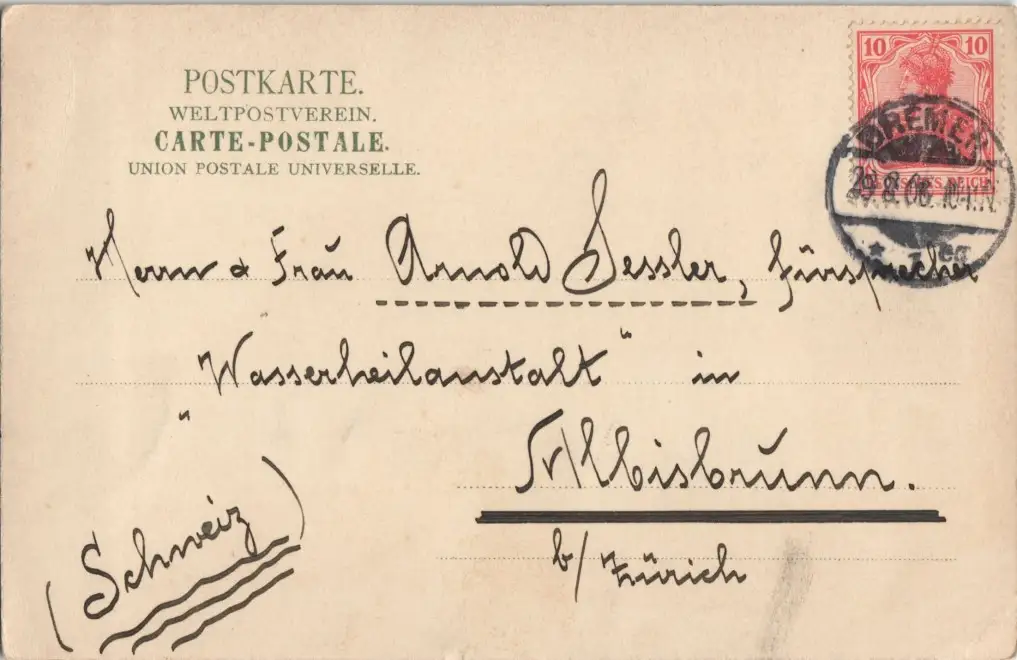 POSTKARTE.
WELTPOSTVEREIN.
CARTE-POSTALE.
UNION POSTALE UNIVERSELLE.
10 10
BREMEN
8.06.
Herrn & Frau Arnold Sessler, Fürsprecher
"Wasserheilanstalt" in
Albisbrunn.
b/ Zürich
(Schweiz)